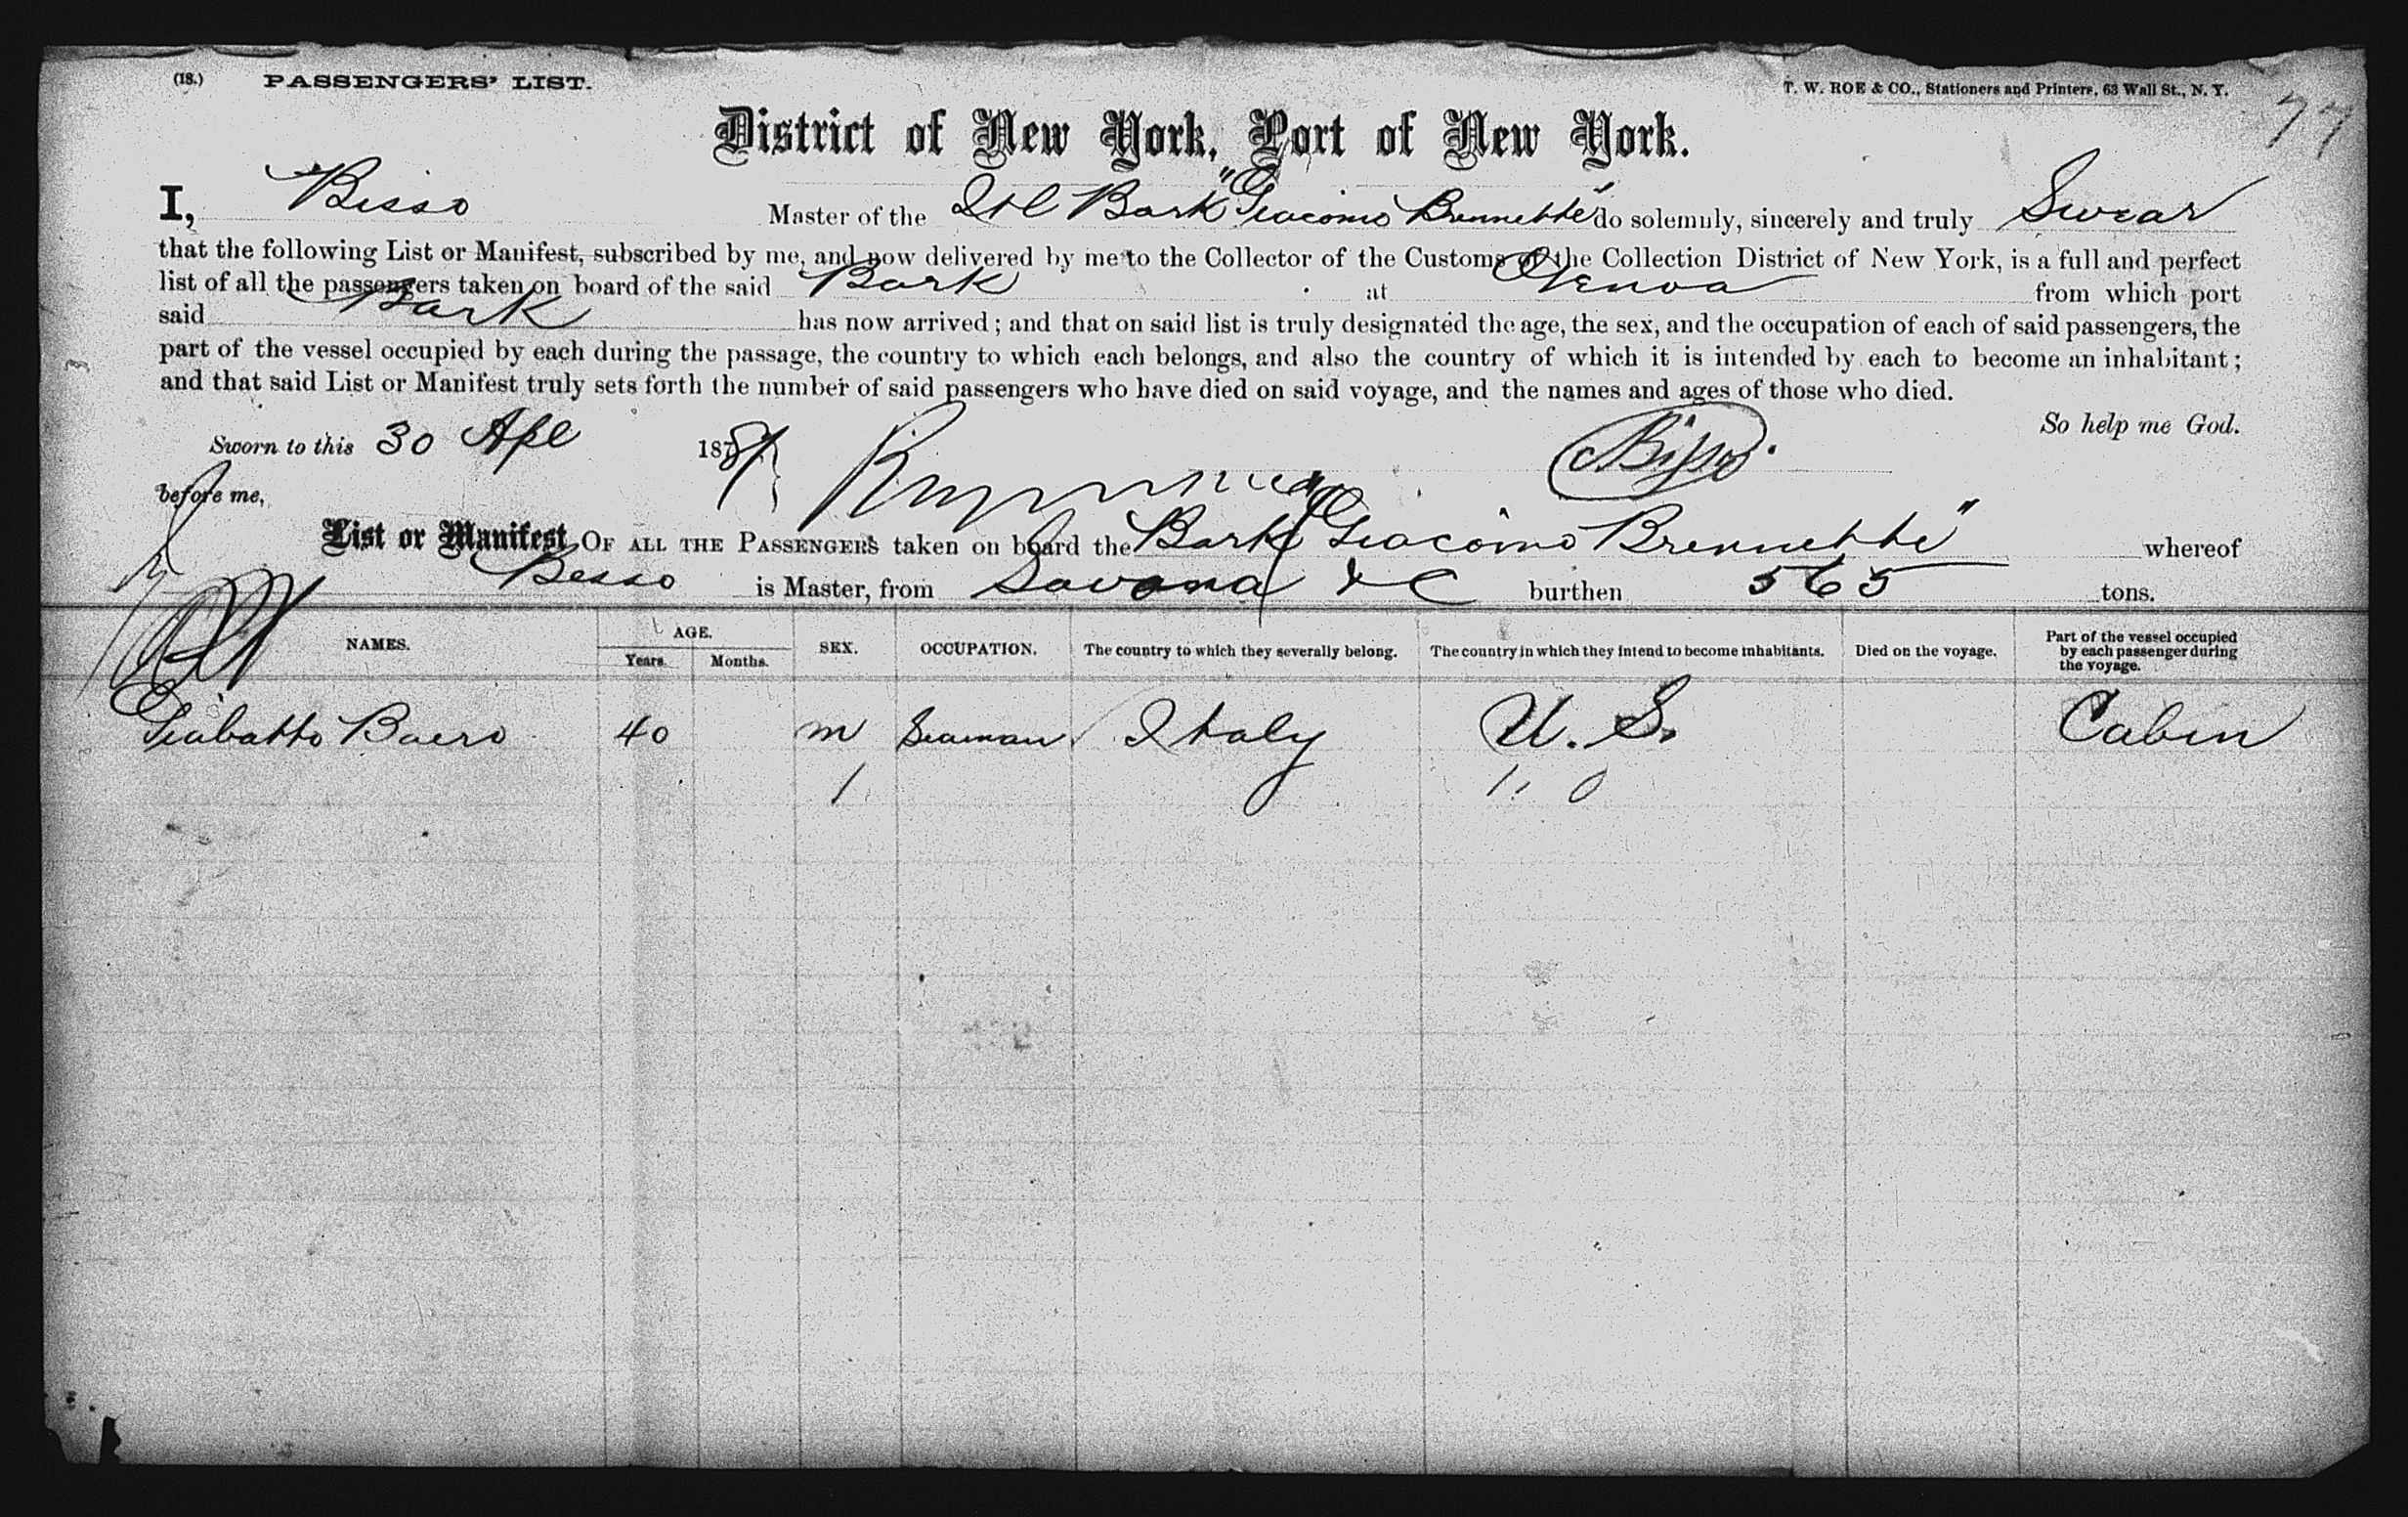 (18.) PASSENGERS' LIST. T. W. ROE & CO., Stationers and Printers, 63 Wall St., N. Y.
77
District of New York, Port of New York.
I, Bisso Master of the Itl Bark "Giacomo Brunnette" do solemnly, sincerely and truly Swear
that the following List or Manifest, subscribed by me, and now delivered by me to the Collector of the Customs of the Collection District of New York, is a full and perfect
list of all the passengers taken on board of the said Bark at Genoa from which port
said Bark has now arrived; and that on said list is truly designated the age, the sex, and the occupation of each of said passengers, the
part of the vessel occupied by each during the passage, the country to which each belongs, and also the country of which it is intended by each to become an inhabitant;
and that said List or Manifest truly sets forth the number of said passengers who have died on said voyage, and the names and ages of those who died.
So help me God.
Sworn to this 30 Apl 1881 Bisso
before me,
List or Manifest OF ALL THE PASSENGERS taken on board the Bark "Giacomo Brennette" whereof
Besso is Master, from Savona &C burthen 565 tons.
NAMES. AGE. Years. Months. SEX. OCCUPATION. The country to which they severally belong. The country in which they intend to become inhabitants. Died on the voyage. Part of the vessel occupied by each passenger during the voyage.
Giabatto Baero 40 m Seaman Italy U. S. Cabin
1